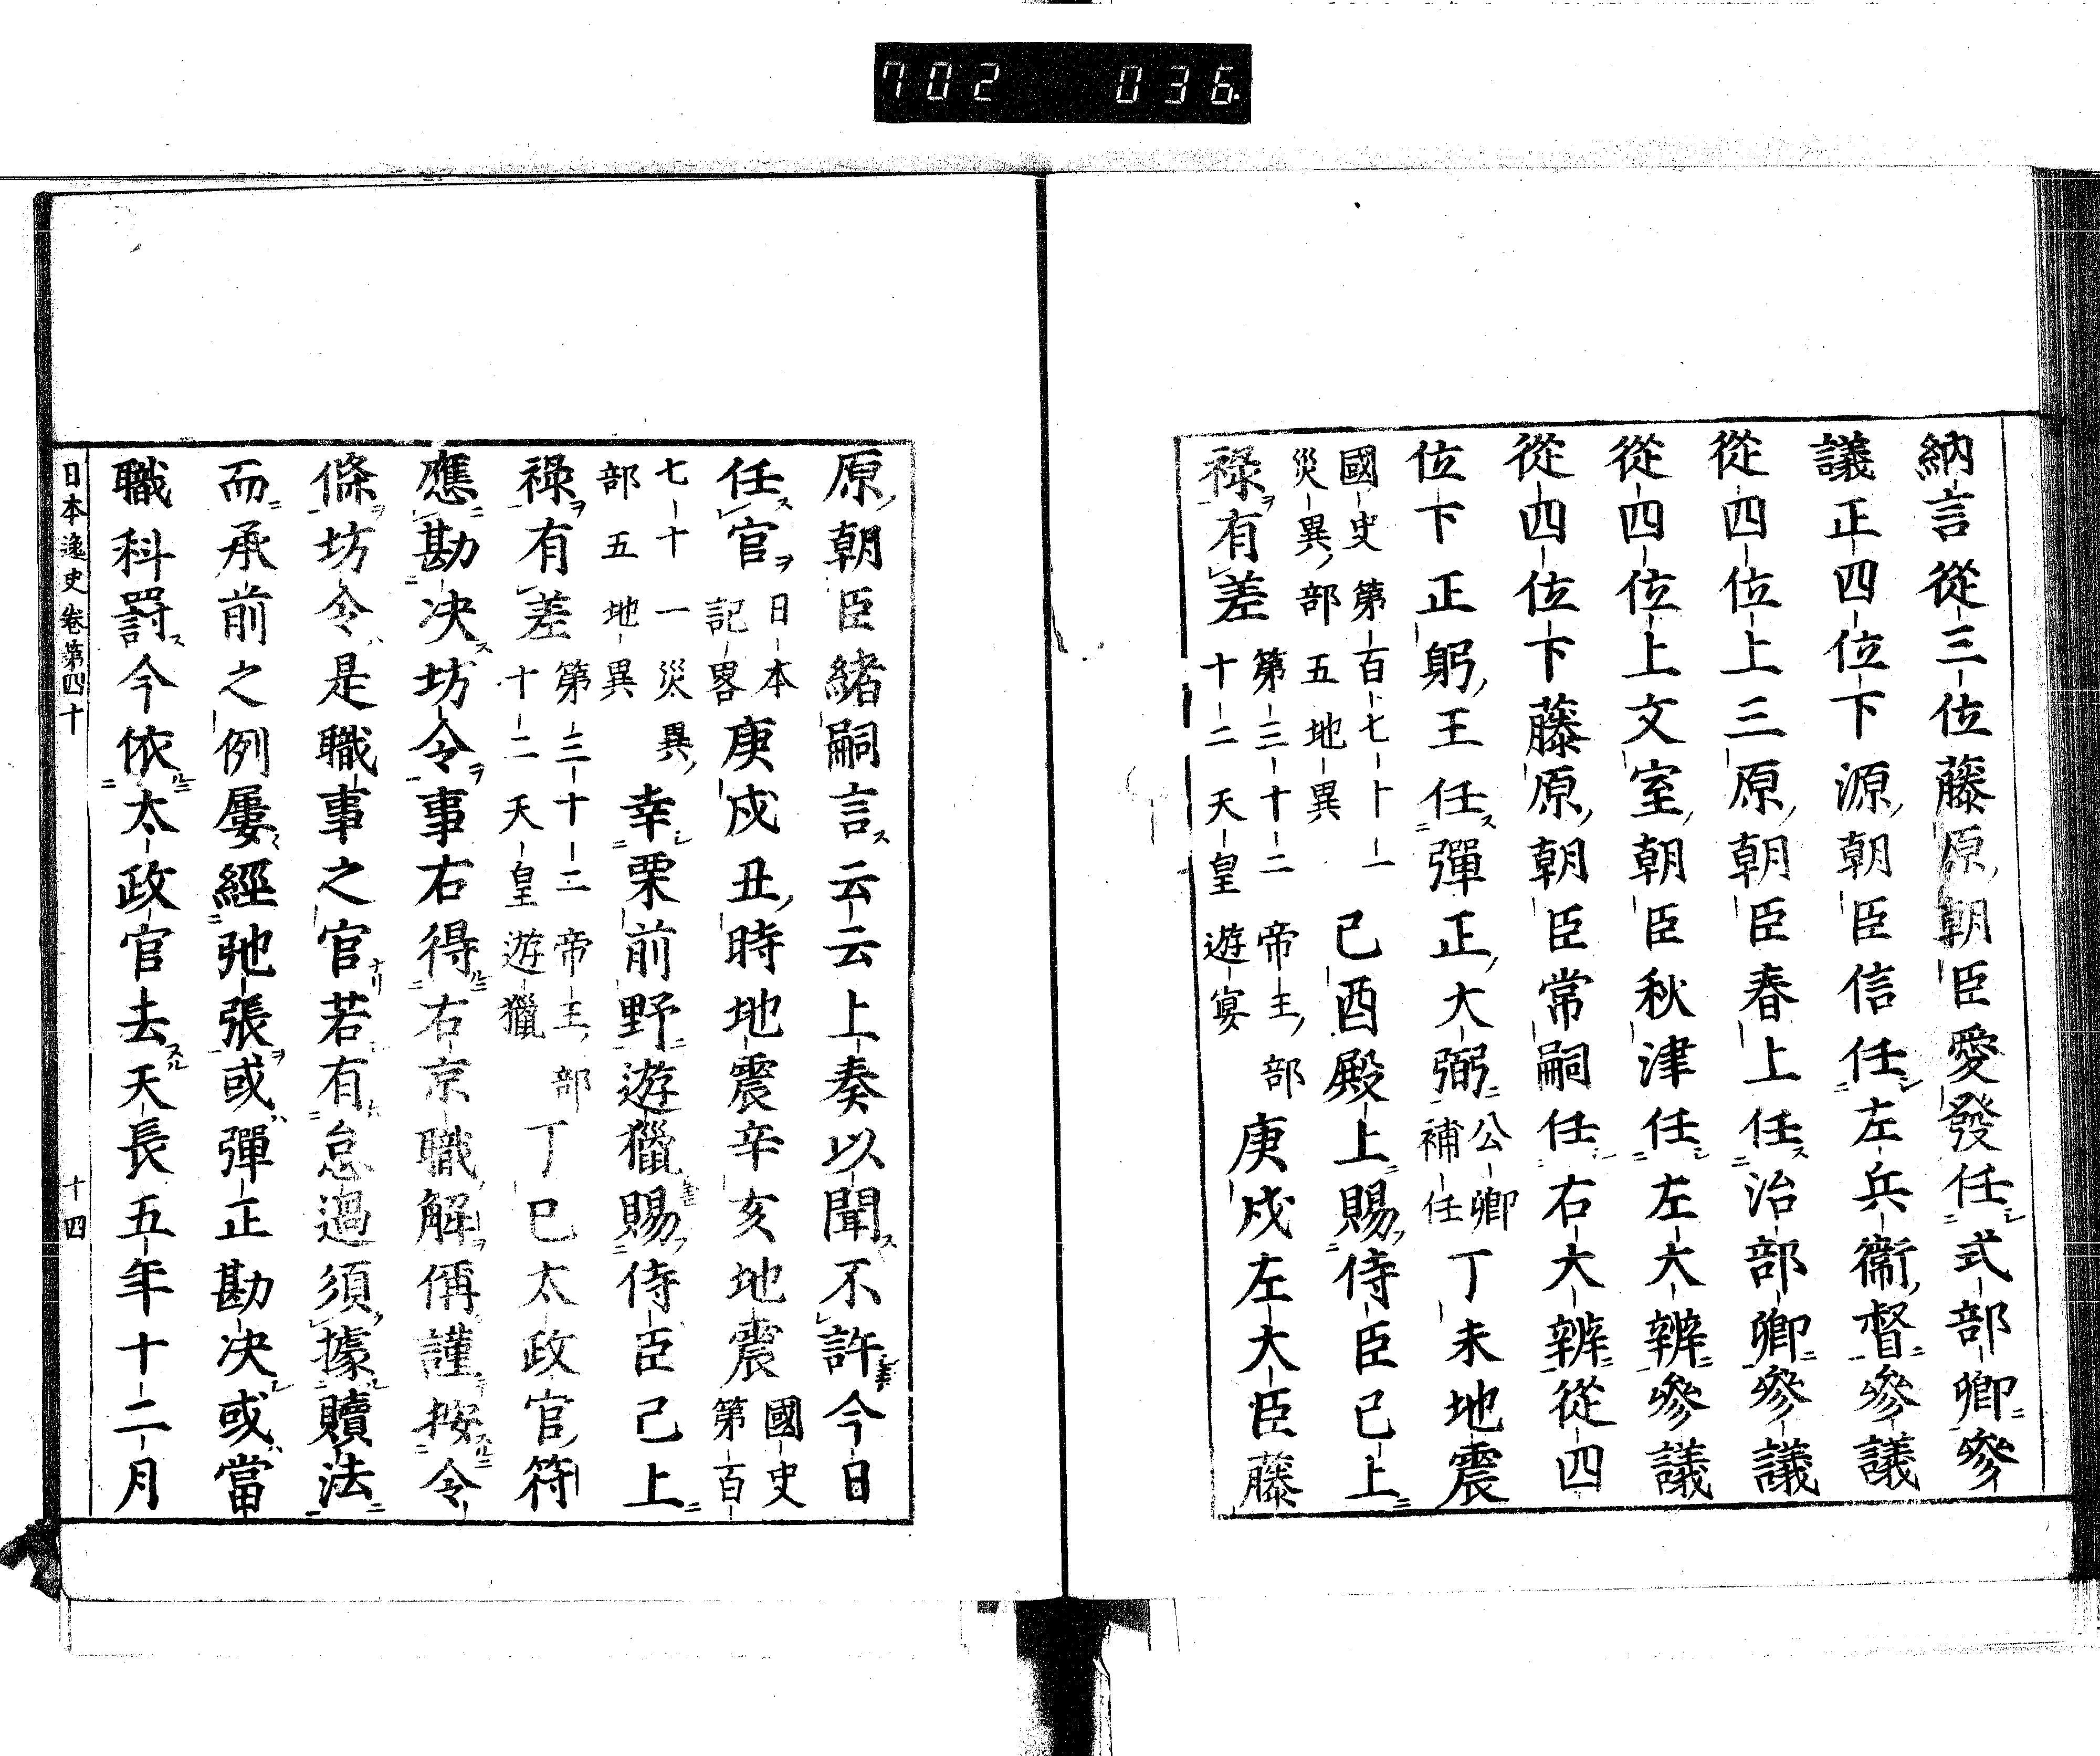 702 036
納言從三位藤原朝臣愛發任式部卿參
議正四位下源朝臣信任左兵衞督參議
從四位上三原朝臣春上任治部卿參議
從四位上文室朝臣秋津任左大辨參議
從四位下藤原朝臣常嗣任右大辨從四
位下正躬王任彈正大弼公卿補任丁未地震
國史第百七十一災異部五地異己酉殿上賜侍臣已上
祿有差第三十二帝王部十二天皇遊宴庚戌左大臣藤
原朝臣緒嗣言云云上奏以聞不許今日
任官日本記畧庚戌丑時地震辛亥地震國史第百
七十一災異部五地異幸栗前野遊獵賜侍臣已上
祿有差第三十二帝王部十二天皇遊獵丁巳太政官符
應勘决坊令事右得右京職解偁謹按令
條坊令是職事之官若有怠過須據贖法
而承前之例屢經弛張或彈正勘决或當
職科罸今依太政官去天長五年十二月
日本逸史卷第四十 十四